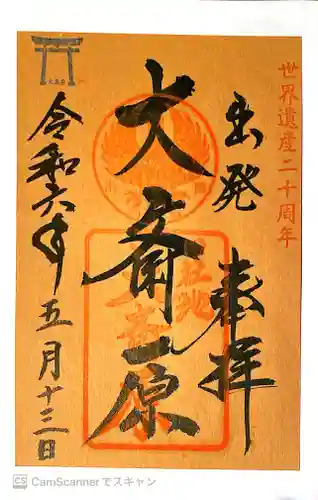 世界遺産二十周年
出発
奉拝
大斎原
令和六年五月十三日
CS CamScannerでスキャン